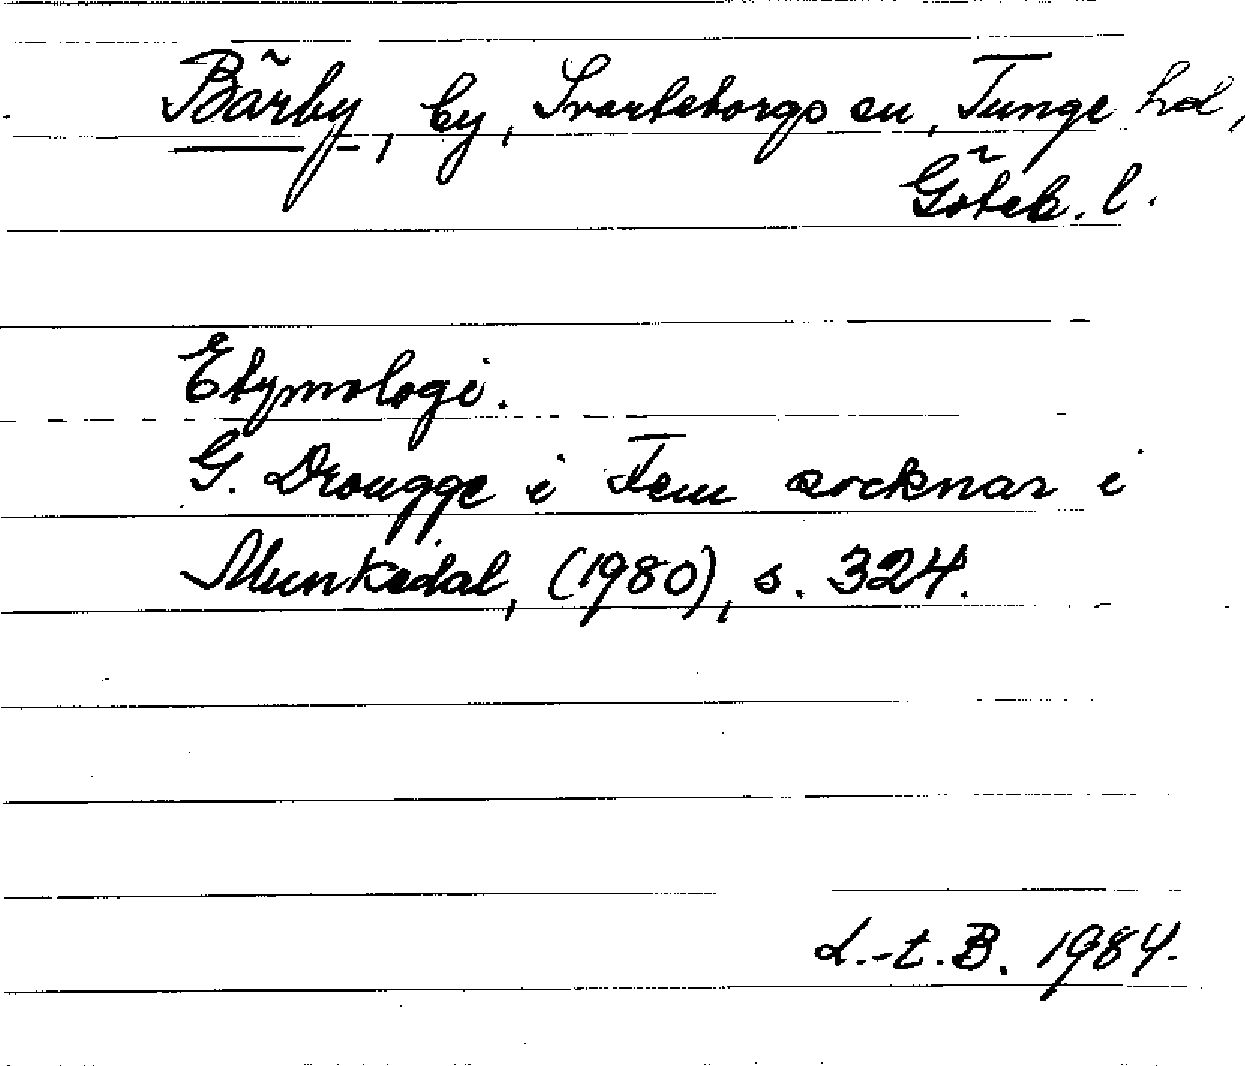 Bärby, by, Svarteborgs sn, Tunge hd,
Göteb. l.
Etymologi.
G. Drougge i Fem socknar i
Munkedal, (1980), s. 324.
L.-t. B. 1984.